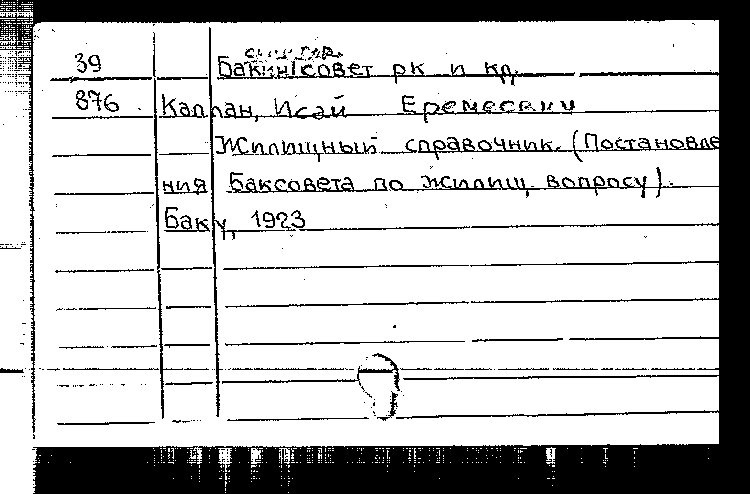 39 Бакин совет рк и кд.
876 Каплан, Исай Еремеевич
Жилищный справочник. (Постановле
ния Баксовета по жилищ. вопросу).
Баку, 1923